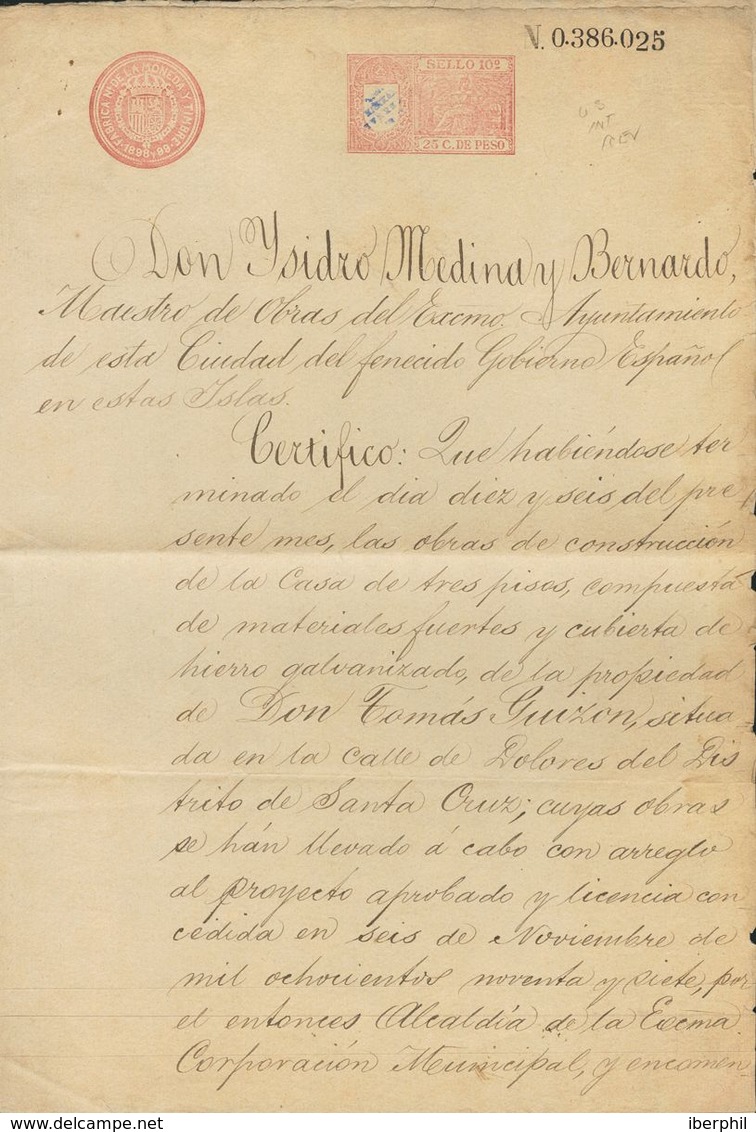 N. 0.386.025
FABRICA NL DE LA MONEDA Y TIMBRE
1898 y 99
SELLO 10º
25 C. DE PESO
U S
INT
REV
Don Ysidro Medina y Bernardo,
Maestro de Obras del Excmo. Ayuntamiento
de esta Ciudad del fenecido Gobierno Español
en estas Islas.
Certifico: Que habiéndose ter
minado el dia diez y seis del pre
sente mes, las obras de construcción
de la Casa de tres pisos, compuesta
de materiales fuertes y cubierta de
hierro galvanizado, de la propiedad
de Don Tomás Guizon, situa
da en la calle de Dolores del Dis
trito de Santa Cruz; cuyas obras
se hán llevado á cabo con arreglo
al proyecto aprobado y licencia con
cedida en seis de Noviembre de
mil ochocientos noventa y siete, por
el entonces Alcaldía de la Excma
Corporación Municipal, y encomen
iberphil